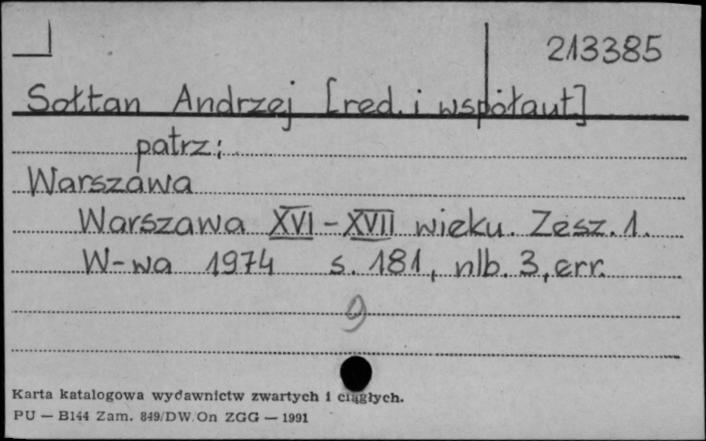 213385
Sołtan Andrzej [red. i współaut]
patrz:
Warszawa
Warszawa XVI-XVII wieku. Zesz. 1.
W-wa 1974 s. 181, nlb. 3, err.
9
Karta katalogowa wydawnictw zwartych i ciągłych.
PU — B144 Zam. 849/DW.On ZGG — 1991